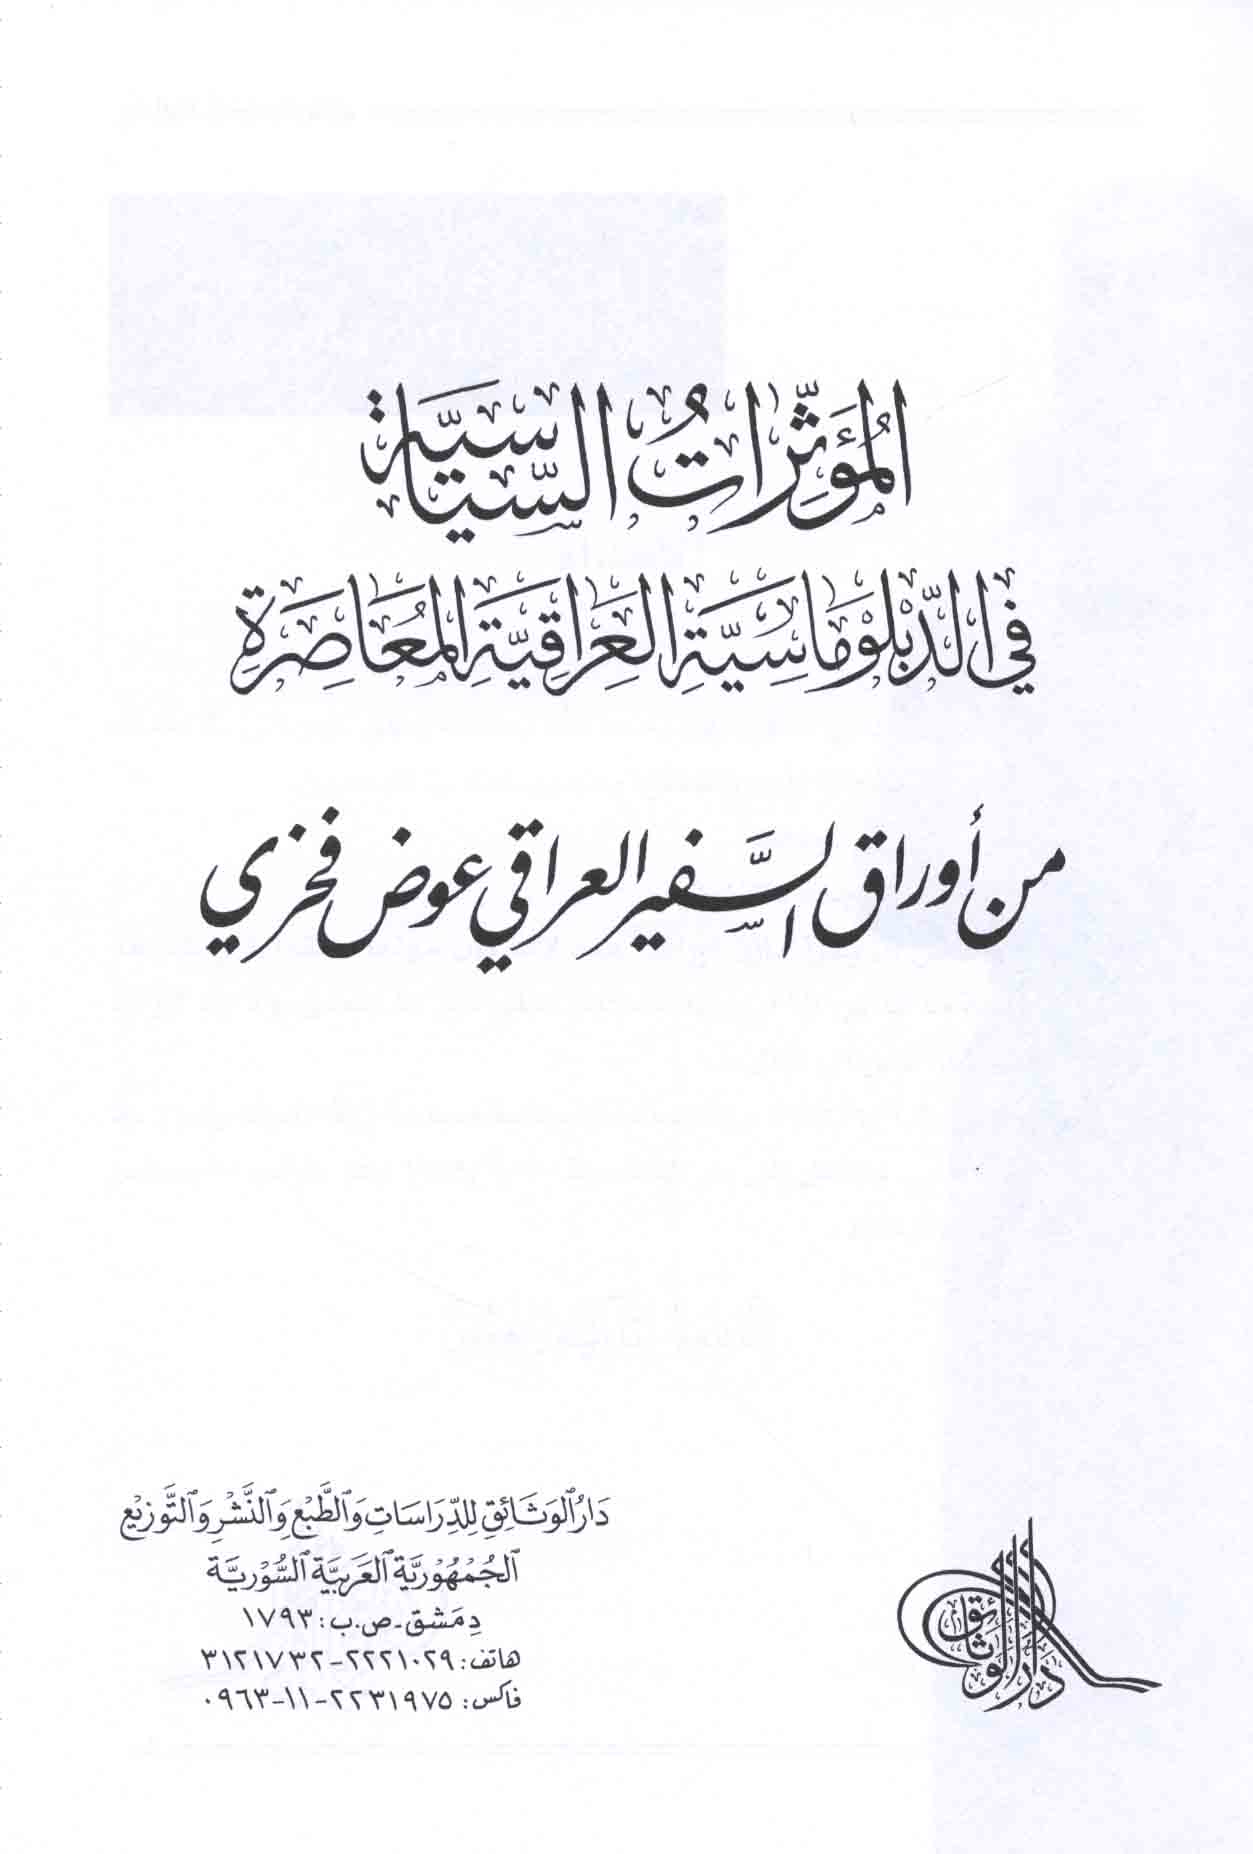 المُؤَثِّرَاتُ السِّيَاسِيَّة
في الدِّبْلُوْمَاسِيَّةِ العِرَاقِيَّةِ المُعَاصِرَة
من أوراق السَّفير العراقي عوض فخري
دَارُ الوَثَائِقِ لِلدِّرَاسَاتِ وَالطَّبْعِ وَالنَّشْرِ وَالتَّوْزِيْع
الجُمْهُوْرِيَّة العَرَبِيَّة السُّوْرِيَّة
دِمَشق - ص.ب: ١٧٩٣
هاتف: ٢٢٢١٠٢٩-٣١٢١٧٣٢
فاكس: ٢٢٣١٩٧٥-١١-٠٩٦٣
دَارُ الوَثَائِق